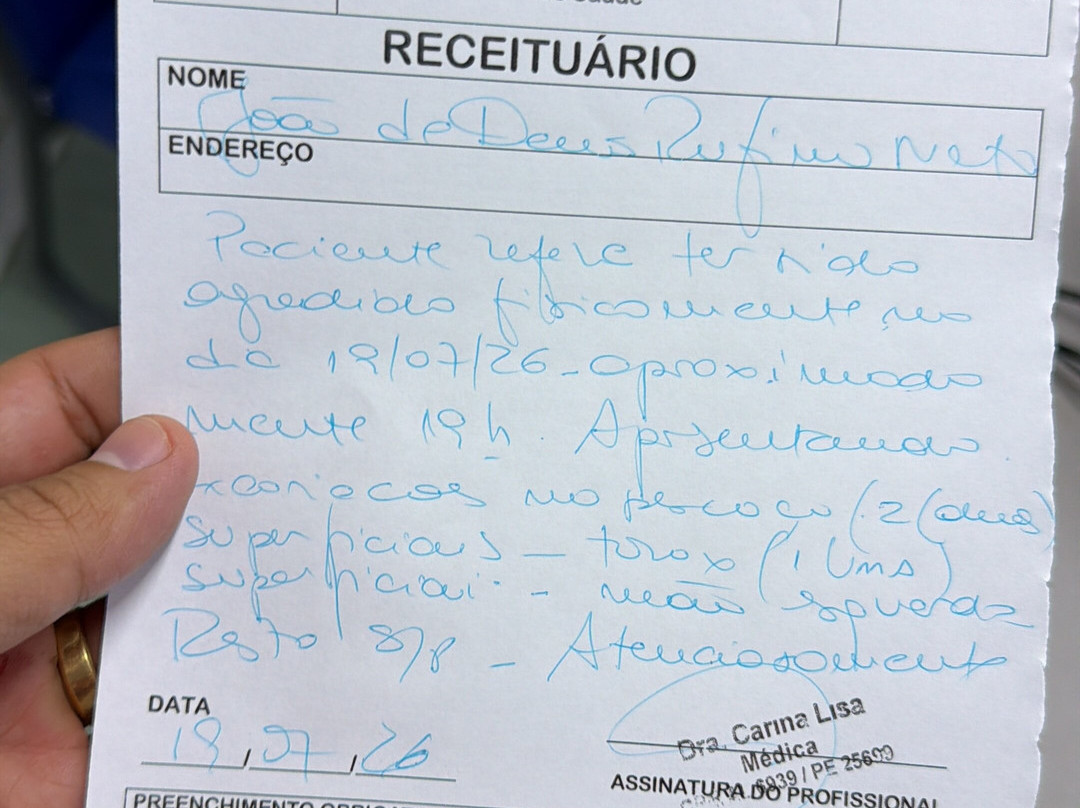 RECEITUÁRIO
NOME
João de Deus Rufino Neto
ENDEREÇO
Paciente refere ter sido
agredido fisicamente, no
dia 19/07/26 - aproximada
mente 19h. Apresentando
no pescoço (2 (duas)
superficiais - torax (1 (uma)
superficial - mão esquerda
Resto s/p - Atenciosamente
DATA
19/07/26
Dra. Carina Lisa
Médica
PE 25699
ASSINATURA DO PROFISSIONAL